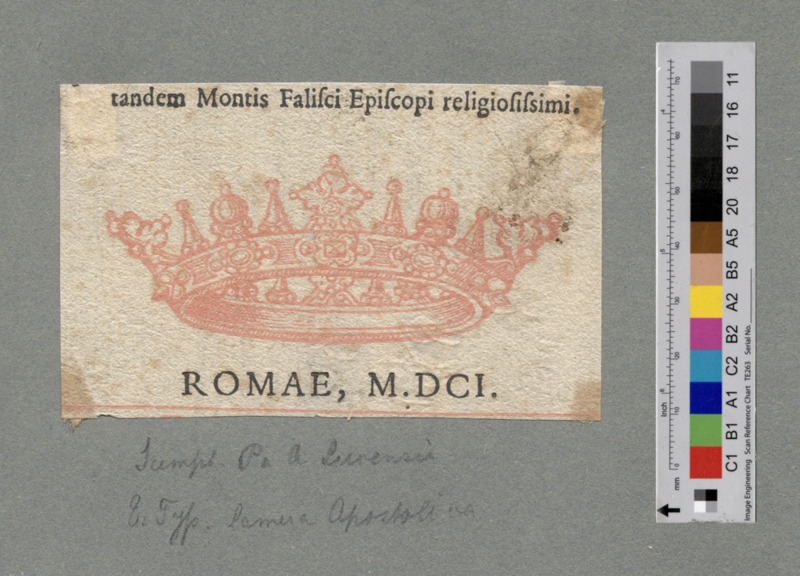 tandem Montis Faliſci Epiſcopi religioſiſsimi.
ROMAE, M.DCI.
Sumpt. Pa A
E. Typ. Camera Apostolica
11
16
17
18
20
A5
B5
A2
B2
C2
A1
B1
C1
mm
Inch
Image Engineering Scan Reference Chart TE263 Serial No.